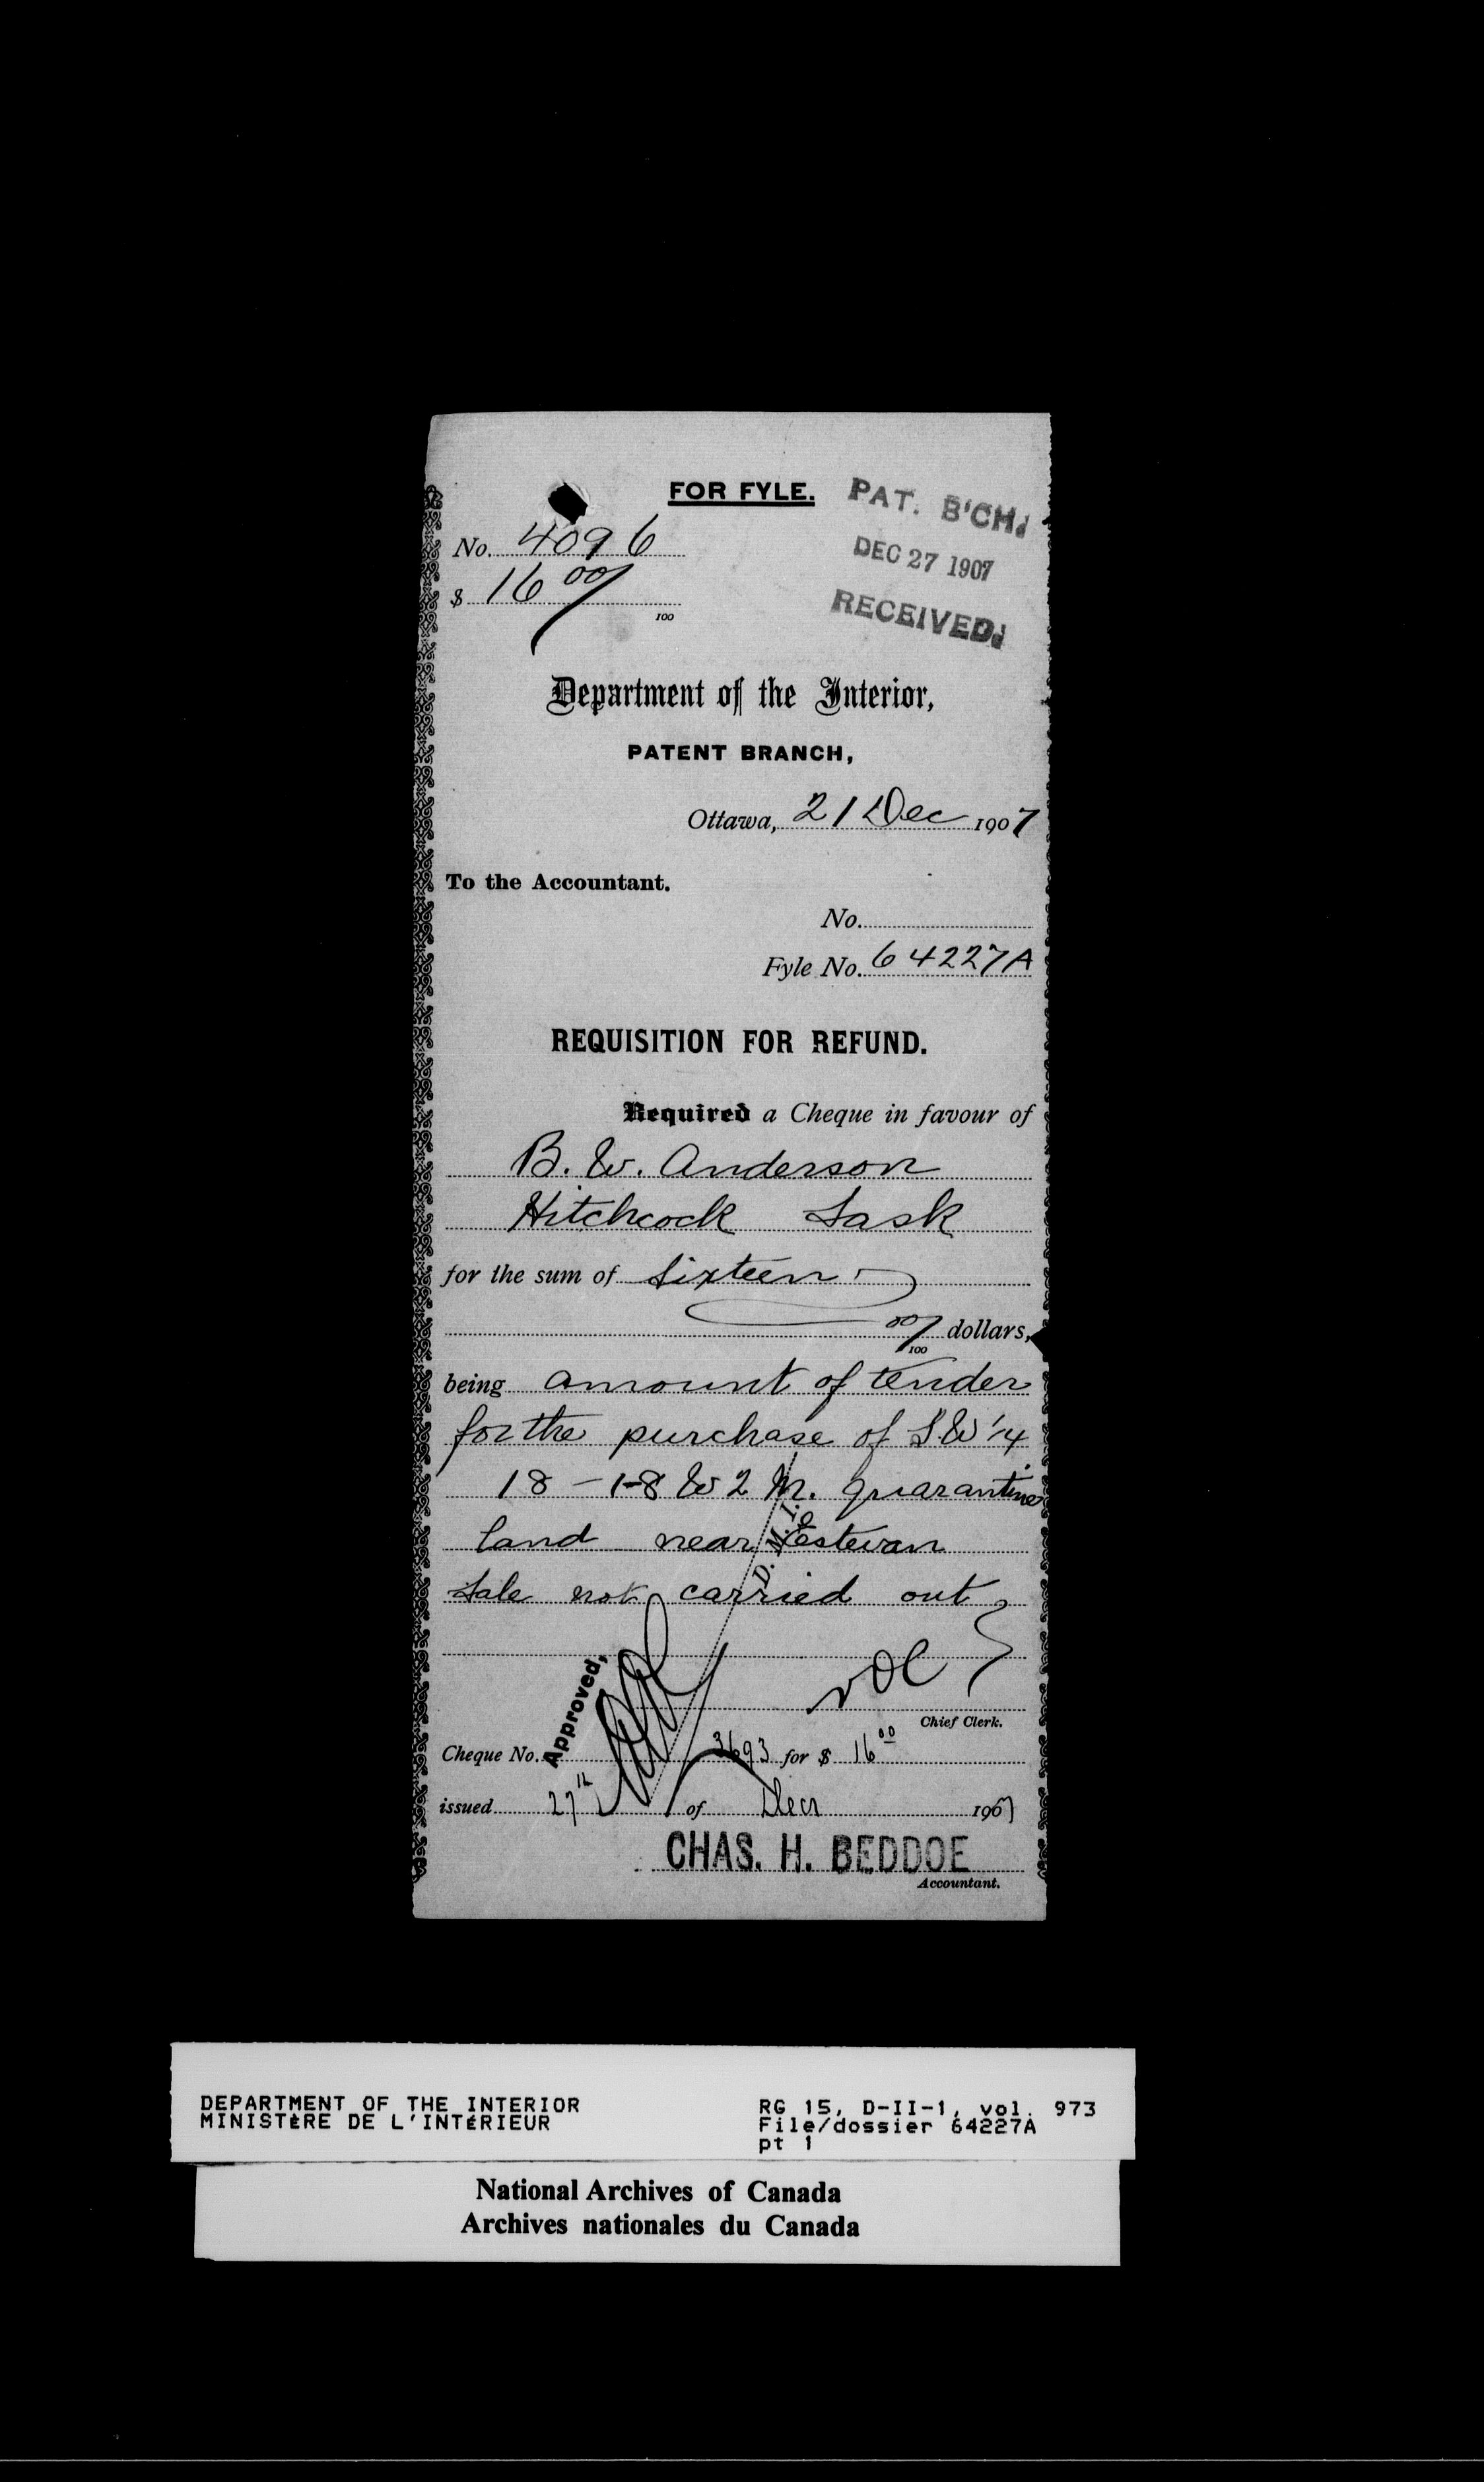 FOR FYLE.
PAT. B'CH.
DEC 27 1907
RECEIVED.
No. 4096
$ 16 00/100
Department of the Interior,
PATENT BRANCH,
Ottawa, 21 Dec 1907
To the Accountant.
No.
Fyle No. 64227A
REQUISITION FOR REFUND.
Required a Cheque in favour of
B. W. Anderson
Hitchcock Sask
for the sum of Sixteen
00/100 dollars,
being amount of tender
for the purchase of S.W 1/4
18 - 1-8 W 2 M. quarantine
land near Estevan
Sale not carried out
Approved,
D. M. I.
Chief Clerk.
Cheque No. 3693 for $ 16 00
issued 27th of Decr 1907
CHAS. H. BEDDOE
Accountant.
DEPARTMENT OF THE INTERIOR
MINISTÈRE DE L'INTÉRIEUR
RG 15, D-II-1, vol. 973
File/dossier 64227A
pt 1
National Archives of Canada
Archives nationales du Canada